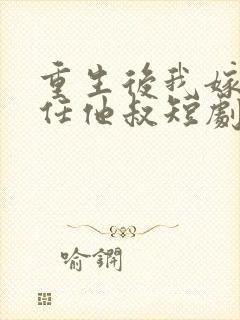 重生後我嫁
任他叔短劇
喻鐗